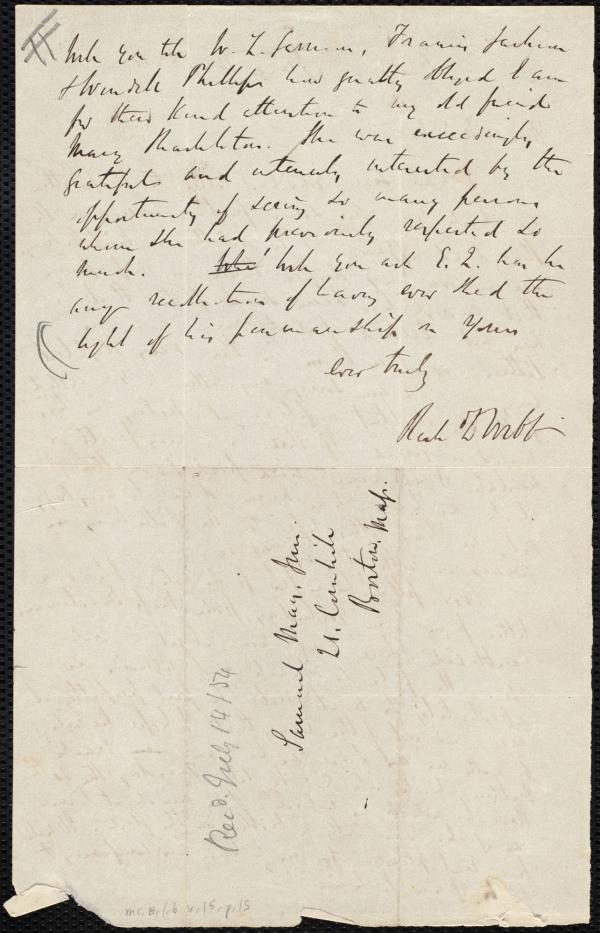 Will you tell W. L. Garrison, Francis Jackson
& Wendell Phillips how greatly obliged I am
for their kind attention to my old friend
Mary Shackleton. She was exceedingly
grateful and intensely interested by the
opportunity of seeing so many persons
whom she had previously respected so
much. Will you ask E. Q. has he
any recollection of having ever shed the
light of his penmanship on Yours
ever truly
Rich D Webb
Samuel May, Jun.
21. Cornhill
Boston, Mass.
Recd. July 14/54